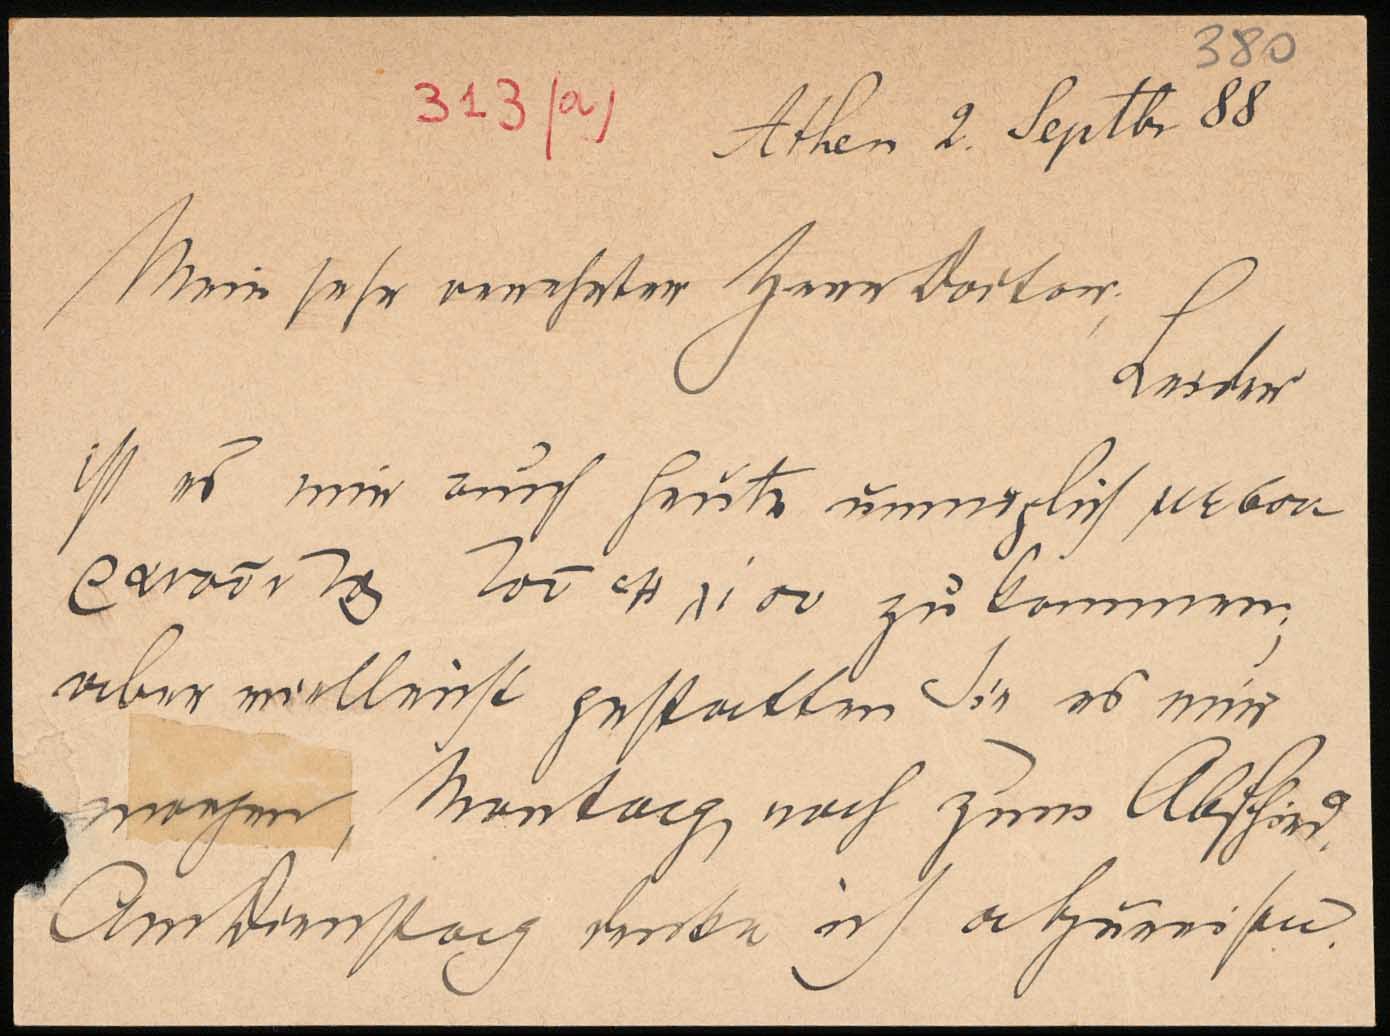 380
313(a)
Athen 2. Septbr 88
Mein sehr verehrter Herr Doctor,
Leider
ist es mir auch heute unmöglich μεσου-
ρανοῦντος τοῦ ἡλίου zu kommen;
aber vielleicht gestatten Sie es mir
morgen, Montag, noch zum Abschied.
Am Dienstag denke ich abzureisen.